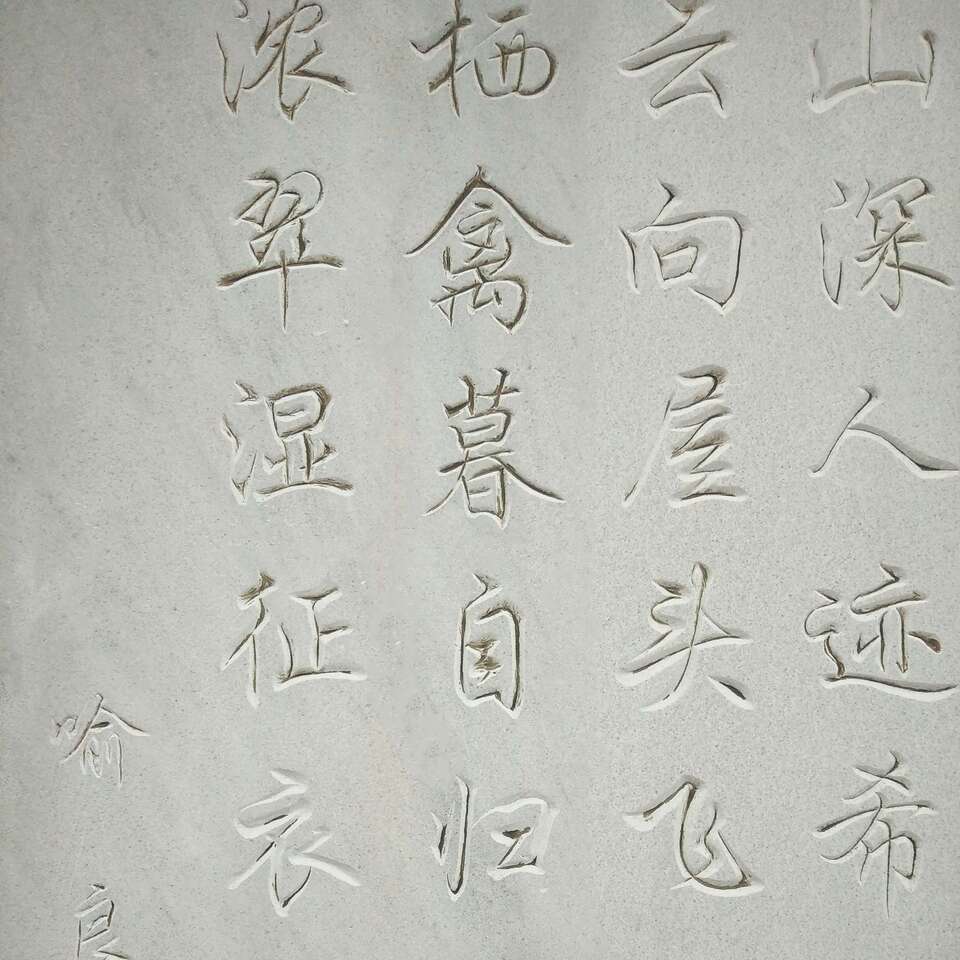 山深人迹希
云向屋头飞
栖禽暮自归
浓翠湿征衣
喻良